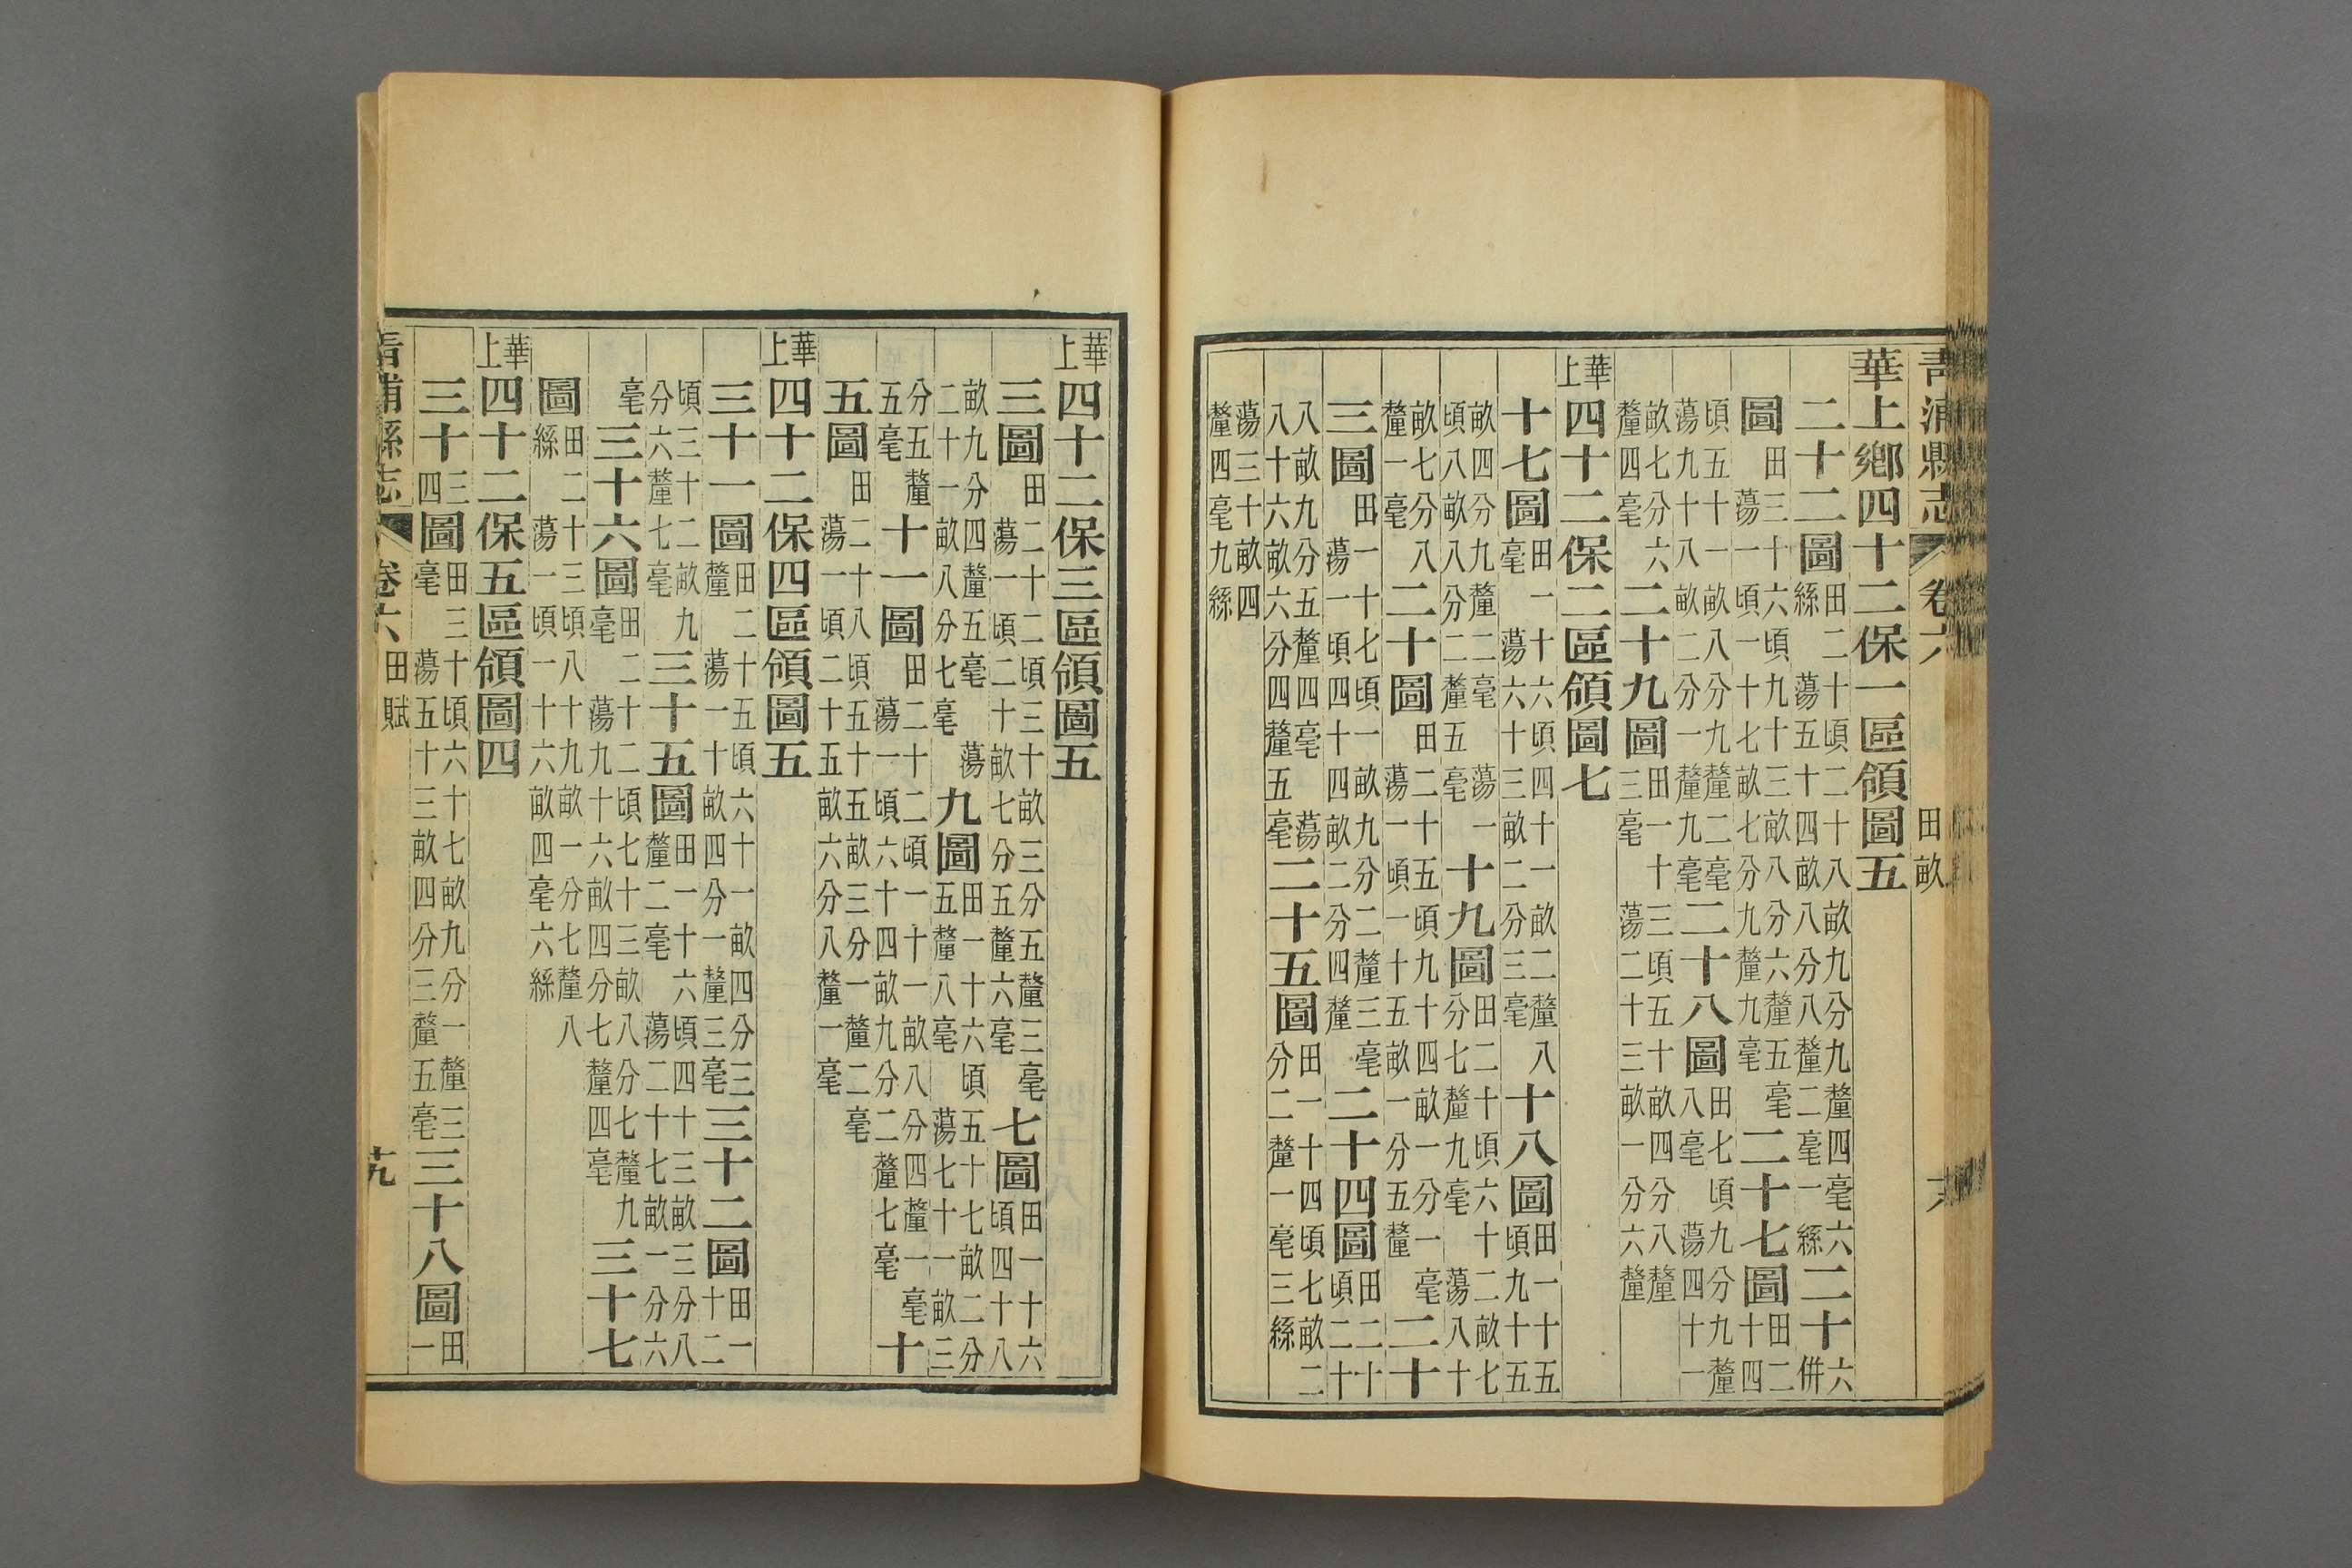 青浦縣志 卷六 田畝
華上鄉四十二保一區領圖五
二十二圖田二十頃二十八畝九分九釐四毫六絲 蕩五十四畝八分八釐二毫一絲二十六併
圖田三十六頃九十三畝八分六釐五毫蕩一頃一十七畝七分九釐九毫二十七圖田二十四
頃五十一畝八分九釐二毫蕩九十八畝二分一釐九毫二十八圖田七頃九分九釐八毫 蕩四十一
畝七分六釐四毫二十九圖田一十三頃五十畝四分八釐三毫 蕩二十三畝一分六釐
華上四十二保二區領圖七
十七圖田一十六頃四十一畝二釐八毫 蕩六十三畝二分三毫十八圖田一十五頃九十五
畝四分九釐二毫 蕩一頃八畝八分二釐五毫十九圖田二十頃六十二畝七分七釐九毫 蕩八十
畝七分八釐一毫二十圖田二十五頃九十四畝一分一毫蕩一頃一十五畝一分五釐二十
三圖田一十七頃一畝九分二釐三毫蕩一頃四十四畝二分四釐二十四圖田二十頃二十
八畝九分五釐四毫 蕩八十六畝六分四釐五毫二十五圖田一十四頃七畝二分二釐一毫三絲
蕩三十畝四釐四毫九絲
華上四十二保三區領圖五
三圖田二十二頃三十畝三分五釐三毫蕩一頃二十畝七分五釐六毫七圖田一十六頃四十八
畝九分四釐五毫 蕩二十一畝八分七毫九圖田一十六頃五十七畝二分五釐八毫 蕩七十一畝三
分五釐五毫十一圖田二十二頃一十一畝八分四釐一毫蕩一頃六十四畝九分二釐七毫十
五圖田二十八頃五十五畝三分一釐二毫蕩一頃二十五畝六分八釐一毫
華上四十二保四區領圖五
三十一圖田二十五頃六十一畝四分三釐 蕩一十畝四分一釐三毫三十二圖田一十二
頃三十二畝九分六釐七毫三十五圖田一十六頃四十三畝三分八釐二毫 蕩二十七畝一分六
毫三十六圖田二十二頃七十三畝八分七釐九毫 蕩九十六畝四分七釐四毫三十七
圖田二十三頃八十九畝一分七釐八絲 蕩一頃一十六畝四毫六絲
華上四十二保五區領圖四
三十三四圖田三十頃六十七畝九分一釐三毫 蕩五十三畝四分三釐五毫三十八圖田一
青浦縣志 卷六 田賦 十九